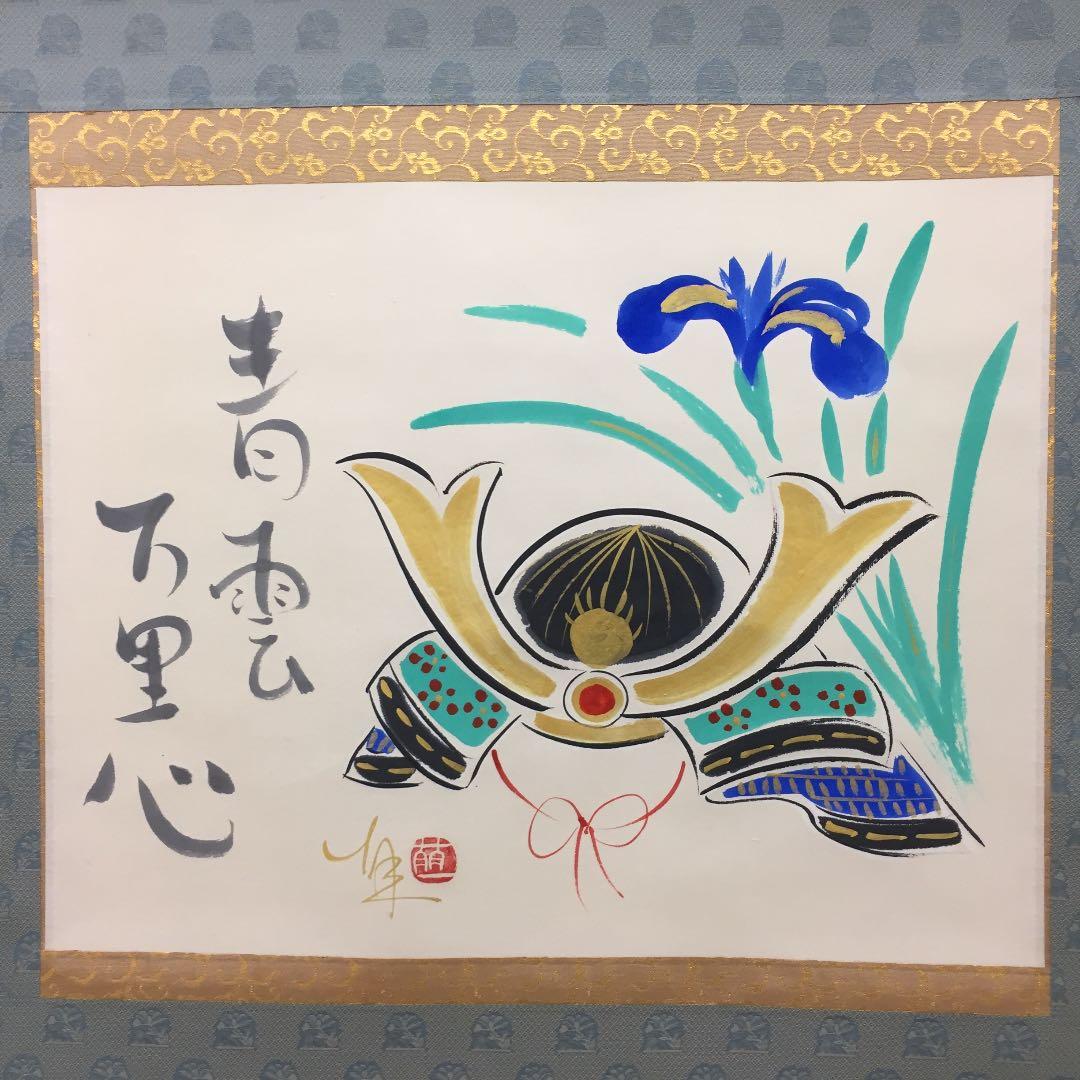 青雲
万里心